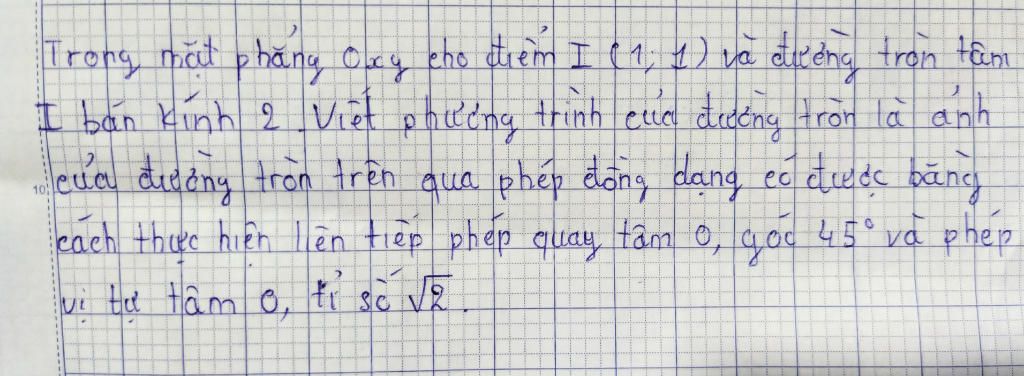 Trong mặt phẳng Oxy cho điểm I (1; 1) và đường tròn tâm
I bán kính 2. Viết phương trình của đường tròn là ảnh
của đường tròn trên qua phép đồng dạng có được bằng
cách thực hiện liên tiếp phép quay tâm O, góc 45° và phép
vị tự tâm O, tỉ số √2.